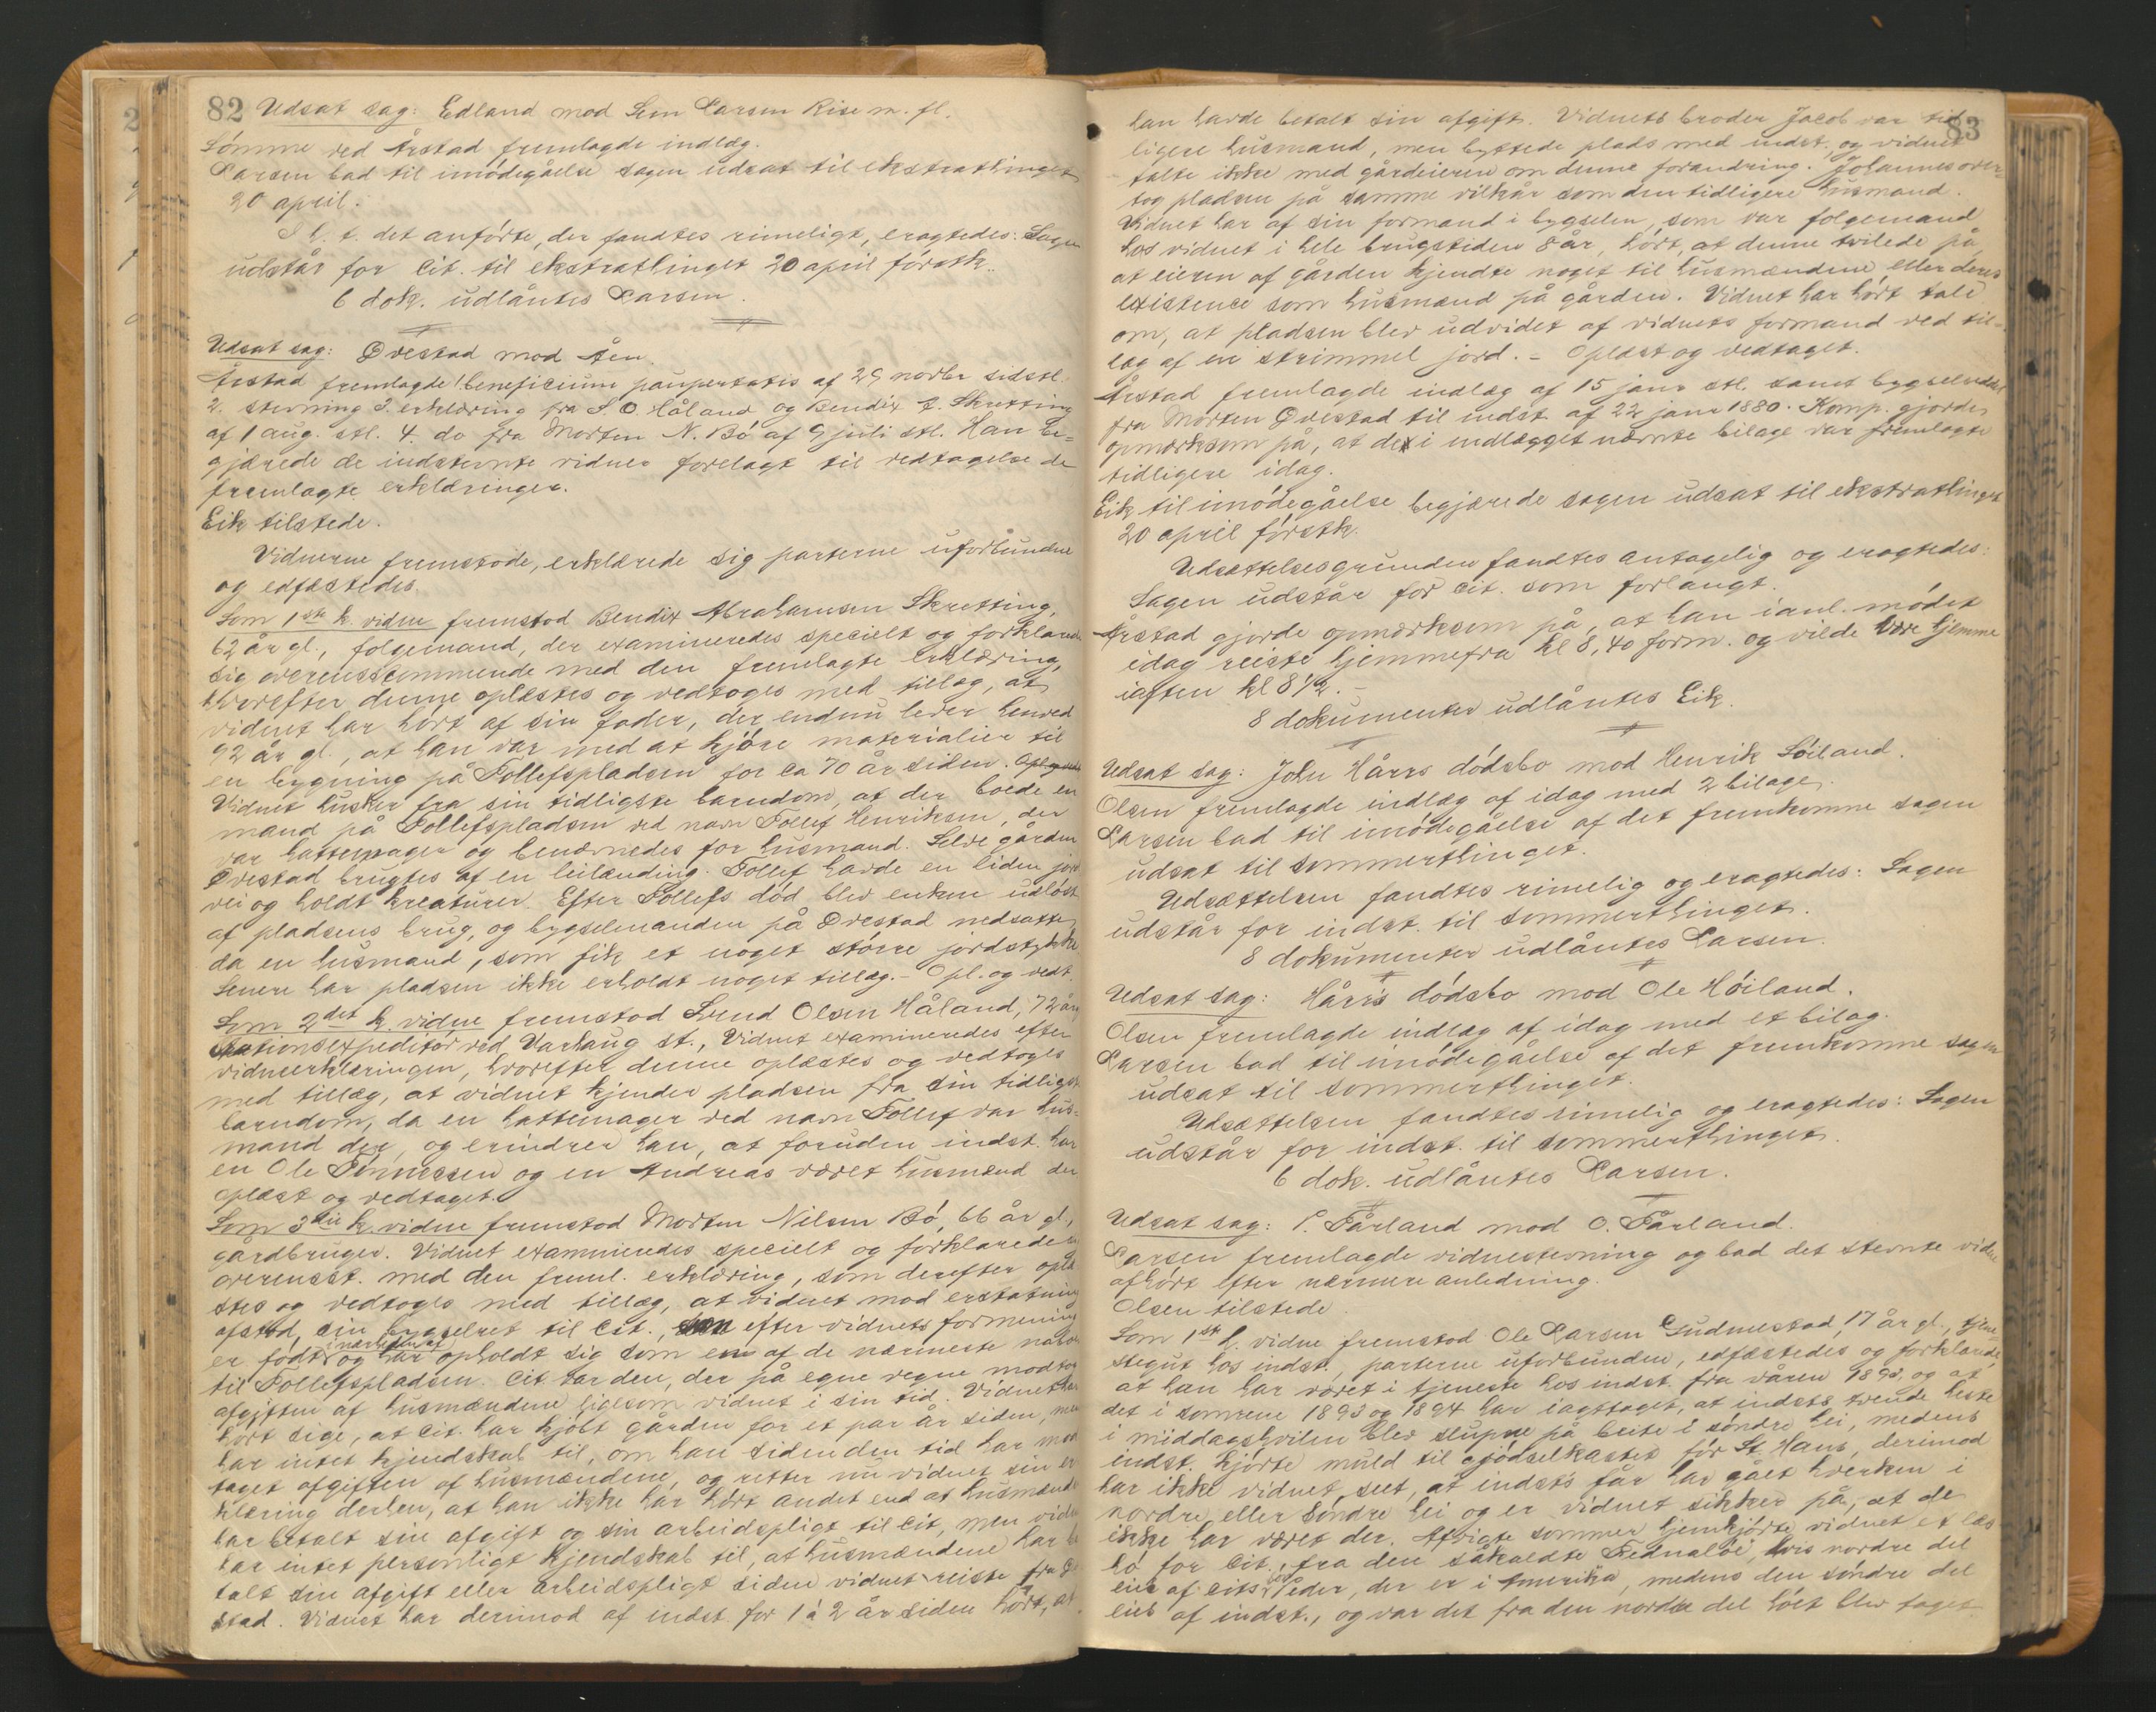 82 Udsat sag: Edland mod Sem Larsen Rise m. fl.
Sömme ved Årstad fremlagde indlæg.
Larsen bad til imödegåelse sagen udsat til ekstrathinget
20 april.
I h. t. det anförte, der fandtes rimeligt, eragtedes: Sagen
udstår for cit. til ekstrathinget 20 april förstk.
6 dok. udlåntes Larsen.
Udsat sag: Ovestad mod Åen.
Årstad fremlagde 1 beneficium paupertatis af 29 novbr sidstl.
2. stevning 3. erklæring fra S. O. Håland og Bendix A. Skretting
af 1 aug. stl. 4. do fra Morten N. Bö af 9 juli stl. Han be-
gjærede de indstevnte vidner forelagt til vedtagelse de
fremlagte erklæringer.
Eik tilstede.
Vidnerne fremstode, erklærede sig parterne uforbundne
og edfæstedes.
Som 1ste h. vidne fremstod Bendix Abrahamsen Skretting,
62 år gl., folgemand, der examineredes specielt og forklarede
sig overensstemmende med den fremlagte erklæring,
hvorefter denne oplæstes og vedtoges med tillæg, at
vidnet har hört af sin fader, der endnu lever henved
92 år gl., at han var med at kjöre materialier til
en bygning på Tollefspladsen for ca 70 år siden.
Vidnet husker fra sin tidligste barndom, at der boede en
mand på Tollefspladsen ved navn Tollef Henriksen, der
var hattemager og benævnedes for husmand. Selve gården
Ovestad brugtes af en leilænding. Tollef havde en liden jord
vei og holdt kreaturer. Efter Tollefs död blev enken udlöst
af pladsens brug, og bygselmanden på Ovestad nedsatte
da en husmand, som fik et noget större jordstykke
Senere har pladsen ikke erholdt noget tillæg. - Opl. og vedt.
Som 2det h. vidne fremstod Svend Olsen Håland, 72 år
stationsexpeditör ved Varhaug st., Vidnet examineredes efter
vidneerklæringen, hvorefter denne oplæstes og vedtoges
med tillæg, at vidnet kjender pladsen fra sin tidligst
barndom, da en hattemager ved navn Tollef var hus-
mand der, og erindrer han, at foruden indst. har
en Ole Tönnessen og en Andreas været husmænd der
oplæst og vedtaget.
Som 3die h. vidne fremstod Morten Nilsen Bö, 66 år gl,
gårdbruger. Vidnet examineredes specielt og forklarede
overensst. med den freml. erklæring, som derefter oplæ
stes og vedtoges med tillæg, at vidnet mod erstatning
afstod sin bygselret til cit., efter vidnets formening
er födt i nærheden af og har opholdt sig som en af de nærmeste nabo
til Tollefspladsen. Cit. var den, der på egne vegne modtog
afgiften af husmændene ligesom vidnet i sin tid. Vidnet har
hört sige, at cit. har kjöbt gården for et par år siden, men
har intet kjendskab til, om han siden den tid har mod
taget afgiften af husmændene, og retter nu vidnet sin er
klæring derhen, at han ikke har hört andet end at husmænde
har betalt sin afgift og sin arbeidspligt til cit, men vidne
har intet personligt kjendskab til, at husmændene har be
talt sin afgift eller arbeidspligt siden vidnet reiste fra O
stad. Vidnet har derimod af indst. for 1 à 2 år siden hört, at
83
han havde betalt sin afgift. Vidnets broder Jacob var tid
ligere husmand, men byttede plads med indst., og vidnet
talte ikke med gårdeieren om denne forandring. Johannes over-
tog pladsen på samme vilkår som den tidligere husmand.
Vidnet har af sin formand i bygselen, som var folgemand
hos vidnet i hele brugstiden 8 år, hört, at denne tvilede på
at eieren af gården kjendte noget til husmændene eller deres
existence som husmænd på gården. Vidnet har hört tale
om, at pladsen blev udvidet af vidnets formand ved til-
læg af en strimmel jord. - Oplæst og vedtaget.
Årstad fremlagde indlæg af 15 janr stl. samt bygselseddel
fra Morten Ovestad til indst. af 22 janr 1880. Komp. gjordes
opmærksom på, at de i indlægget nævnte bilage var fremlagte
tidligere idag.
Eik til imödegåelse begjærede sagen udsat til ekstrathinget
20 april förstk.
Udsættelsesgrunden fandtes antagelig og eragtedes:
Sagen udstår for cit. som forlangt.
Årstad gjorde opmærksom på, at han i anl. mödet
idag reiste hjemmefra kl 8,40 form. og vilde være hjemme
iaften kl 8 1/2. -
8 dokumenter udlåntes Eik.
Udsat sag: John Hårrs dödsbo mod Henrik Söiland.
Olsen fremlagde indlæg af idag med 2 bilage.
Larsen bad til imödegåelse af det fremkomne sagen
udsat til sommerthinget.
Udsættelsen fandtes rimelig og eragtedes: Sagen
udstår for indst. til sommerthinget.
8 dokumenter udlåntes Larsen.
Udsat sag: Hårrs dödsbo mod Ole Höiland.
Olsen fremlagde indlæg af idag med et bilag.
Larsen bad til imödegåelse af det fremkomne sagen
udsat til sommerthinget.
Udsættelsen fandtes rimelig og eragtedes: Sagen
udstår for indst. til sommerthinget.
6 dok. udlåntes Larsen.
Udsat sag: P. Fårland mod O. Fårland.
Larsen fremlagde vidnestevning og bad det stevnte vidne
afhört efter nærmere anledning.
Olsen tilstede.
Som 1ste h. vidne fremstod Ole Larsen Gudmestad, 17 år gl., tjene-
stegut hos indst., parterne uforbunden, edfæstedes og forklarede,
at han har været i tjeneste hos indst. fra våren 1893, og at
det i somrene 1893 og 1894 har iagttaget, at indsts tvende heste
i middagshvilen blev slupne på beite i söndre hei, medens
indst. kjörte muld til gjödselkastet för St. Hans, derimod
har ikke vidnet seet, at indsts får har gået hverken i
nordre eller söndre hei og er vidnet sikker på, at de
ikke har været der. Afvigte sommer hjemkjörte vidnet et læs
hö for cit., fra den såkaldte Frednalöe, hvis nordre del
eies af cits. , der er i Amerika, medens den söndre del
eies af indst., og var det fra den nordre del höet blev taget